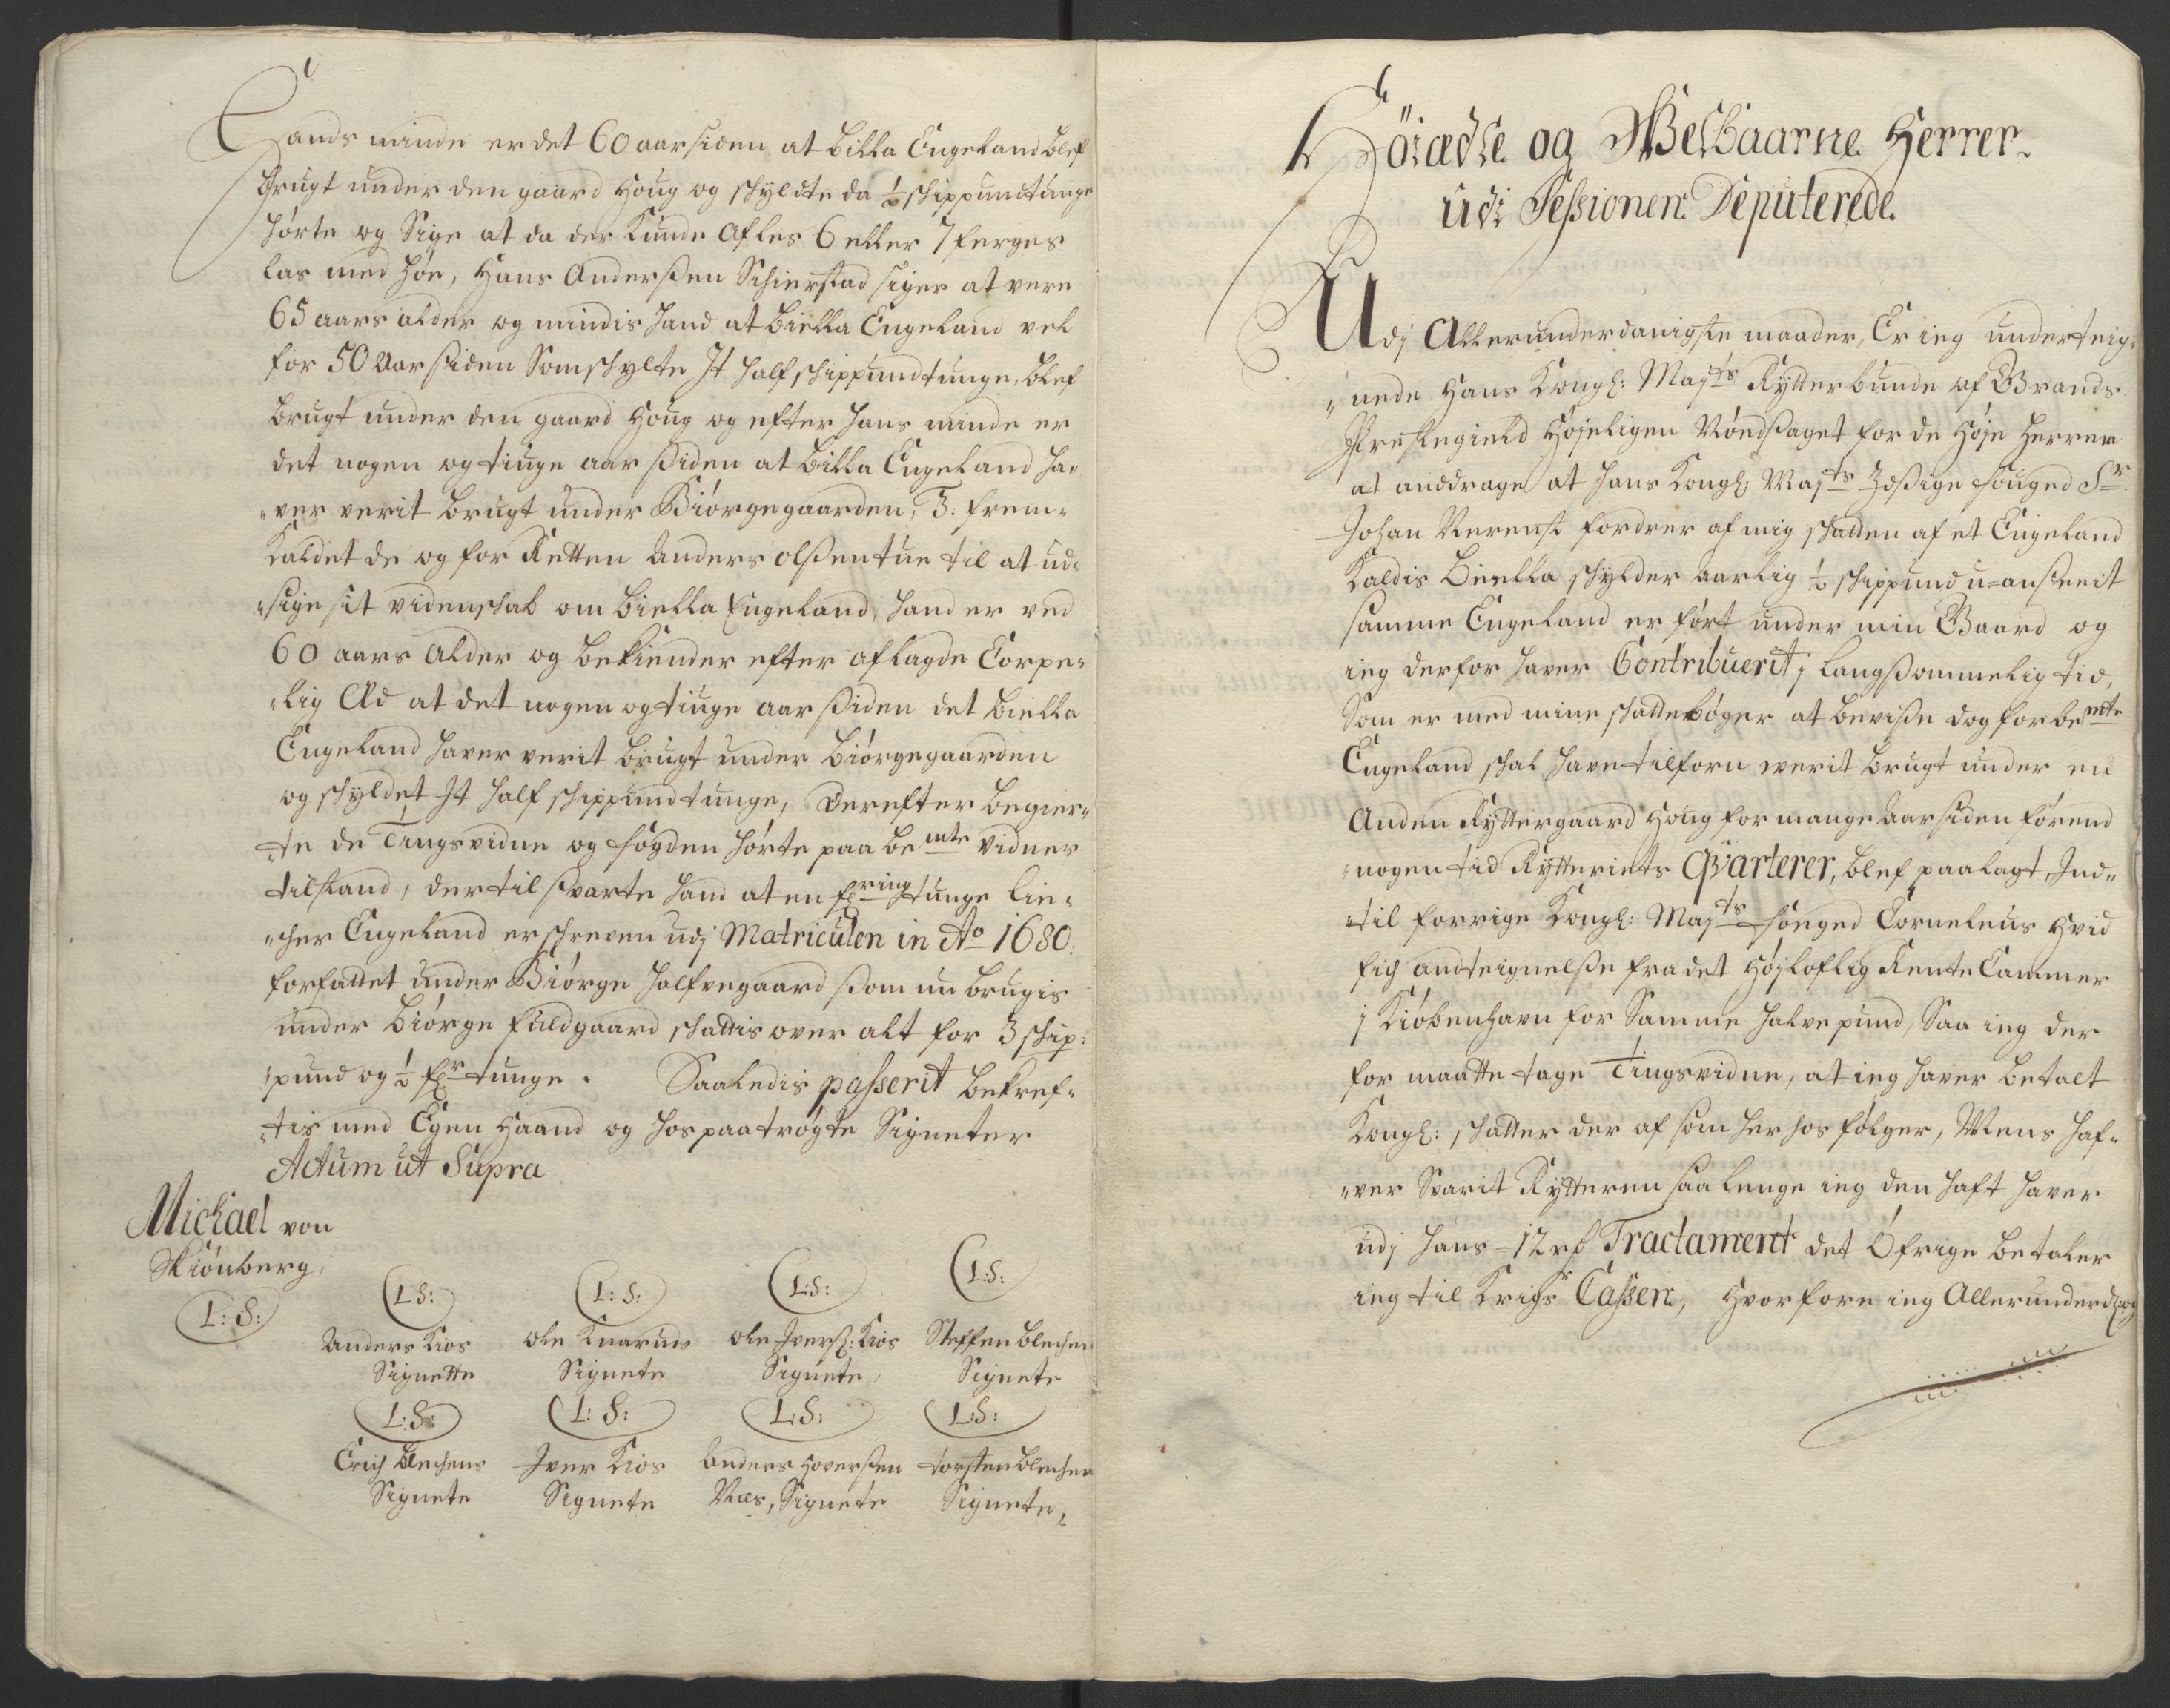 Hands minde er det 60 aar siden at Billa Engeland blef
Brugt under den gaard Houg og schyldte da ½ schippundtunge
hörte og Sige at da der Kunde Afles 6 eller 7 ferges
las med höe, Hans Anderßen Schierstad siger at vere
65 aars alder og mindis hand at Biella Engeland vel
for 50 Aar siden Som schylte Jt half schippundtunge, blef
brugt under den gaard Houg og efter hans minde er
det nogen og tiuge aar ßiden at Billa Engeland ha-
"ver verit brugt under Biörgegaarden, 3: frem-
Kaldet de og for Retten Anders Olßen tue til at ud-
"sige sit videnschab om Biella Engeland, hand er ved
60 aars Alder og bekiender efter aflagde Corpe-
"lig Æd at det nogen og tiuge aar ßiden det Biella
Engeland haver verit brugt under Biörgegaarden
og schyldet Jt half schippund tunge, derefter begier-
"te de Tingsvidne og fogden hörte paa bemte vidner
tilstand, der til Svarte hand at en fℓringtunge lin-
"cher Engeland er schreven udj Matriculen in Ao 1680:
forfattet under Biörge halfvegaard ßom nu brugis
under Biörge fuldgaard schattis over alt for 3 schip:
"pund og ½ fℓr tunge. Saaledis passerit bekref-
"tis med Egen Haand og hos paatrögte Signeter
Actum ut Supra
Michael von
Skiönberg,
L: S:
L S: L: S: L:S: L:S:
Anders Kios Ole Knaruds Ole Iverß: Kios Steffen Blechen
Signette Signete Signete, Signete
L: S: L: S: L: S: L:S:
Erich Blechens Iver Kios Anders Hoverßen torsten Blechen
Signete Signete Næs, Signete Signete,
Höiædle og Welbaarne Herrer
udi Sessionen Deputerede.
Udj Allerunderdanigste maader, Er ieg underteig-
"nede Hans Kongl: Majts Rytterbunde af Brands
Prestegield Höjeligen Nöedßaget for de Höje Herrer
at anddrage at hans Kongl: Majts Foged Sr.
Johan fordrer af mig schatten af et Engeland
Kaldis Biella schylder aarlig ½ schippund u-anßeeit
samme Engeland er fört under min Gaard og
ieg derfor haver Contribuerit j langßommelig tid,
Som er med mine schatteböger at beviße dog forbemte
Engeland schal have tilforn werit brugt under en
Anden Ryttergaard Houg for mange Aar siden förend
nogen tid Rytteriets Qvarterer, blef paalagt, Ind-
"til forrige Kongl: Majts fouged Corneleus Hvid
fich andteignelße fra det Höjloflig Rente Cammer
j Kiöbenhavn for Samme halve pund, Saa ieg der
for maatte tage Tingsvidne, at ieg haver betalt
Kongl: schatter der af som her hos fölger, Mens haf-
"ver Svarit Rytteren saa lenge ieg den haft haver
udj hans 12 rd Tractament det Öfrige betaler
ieg til Krigs Cassen, Hvorfore ieg Allerunderd: